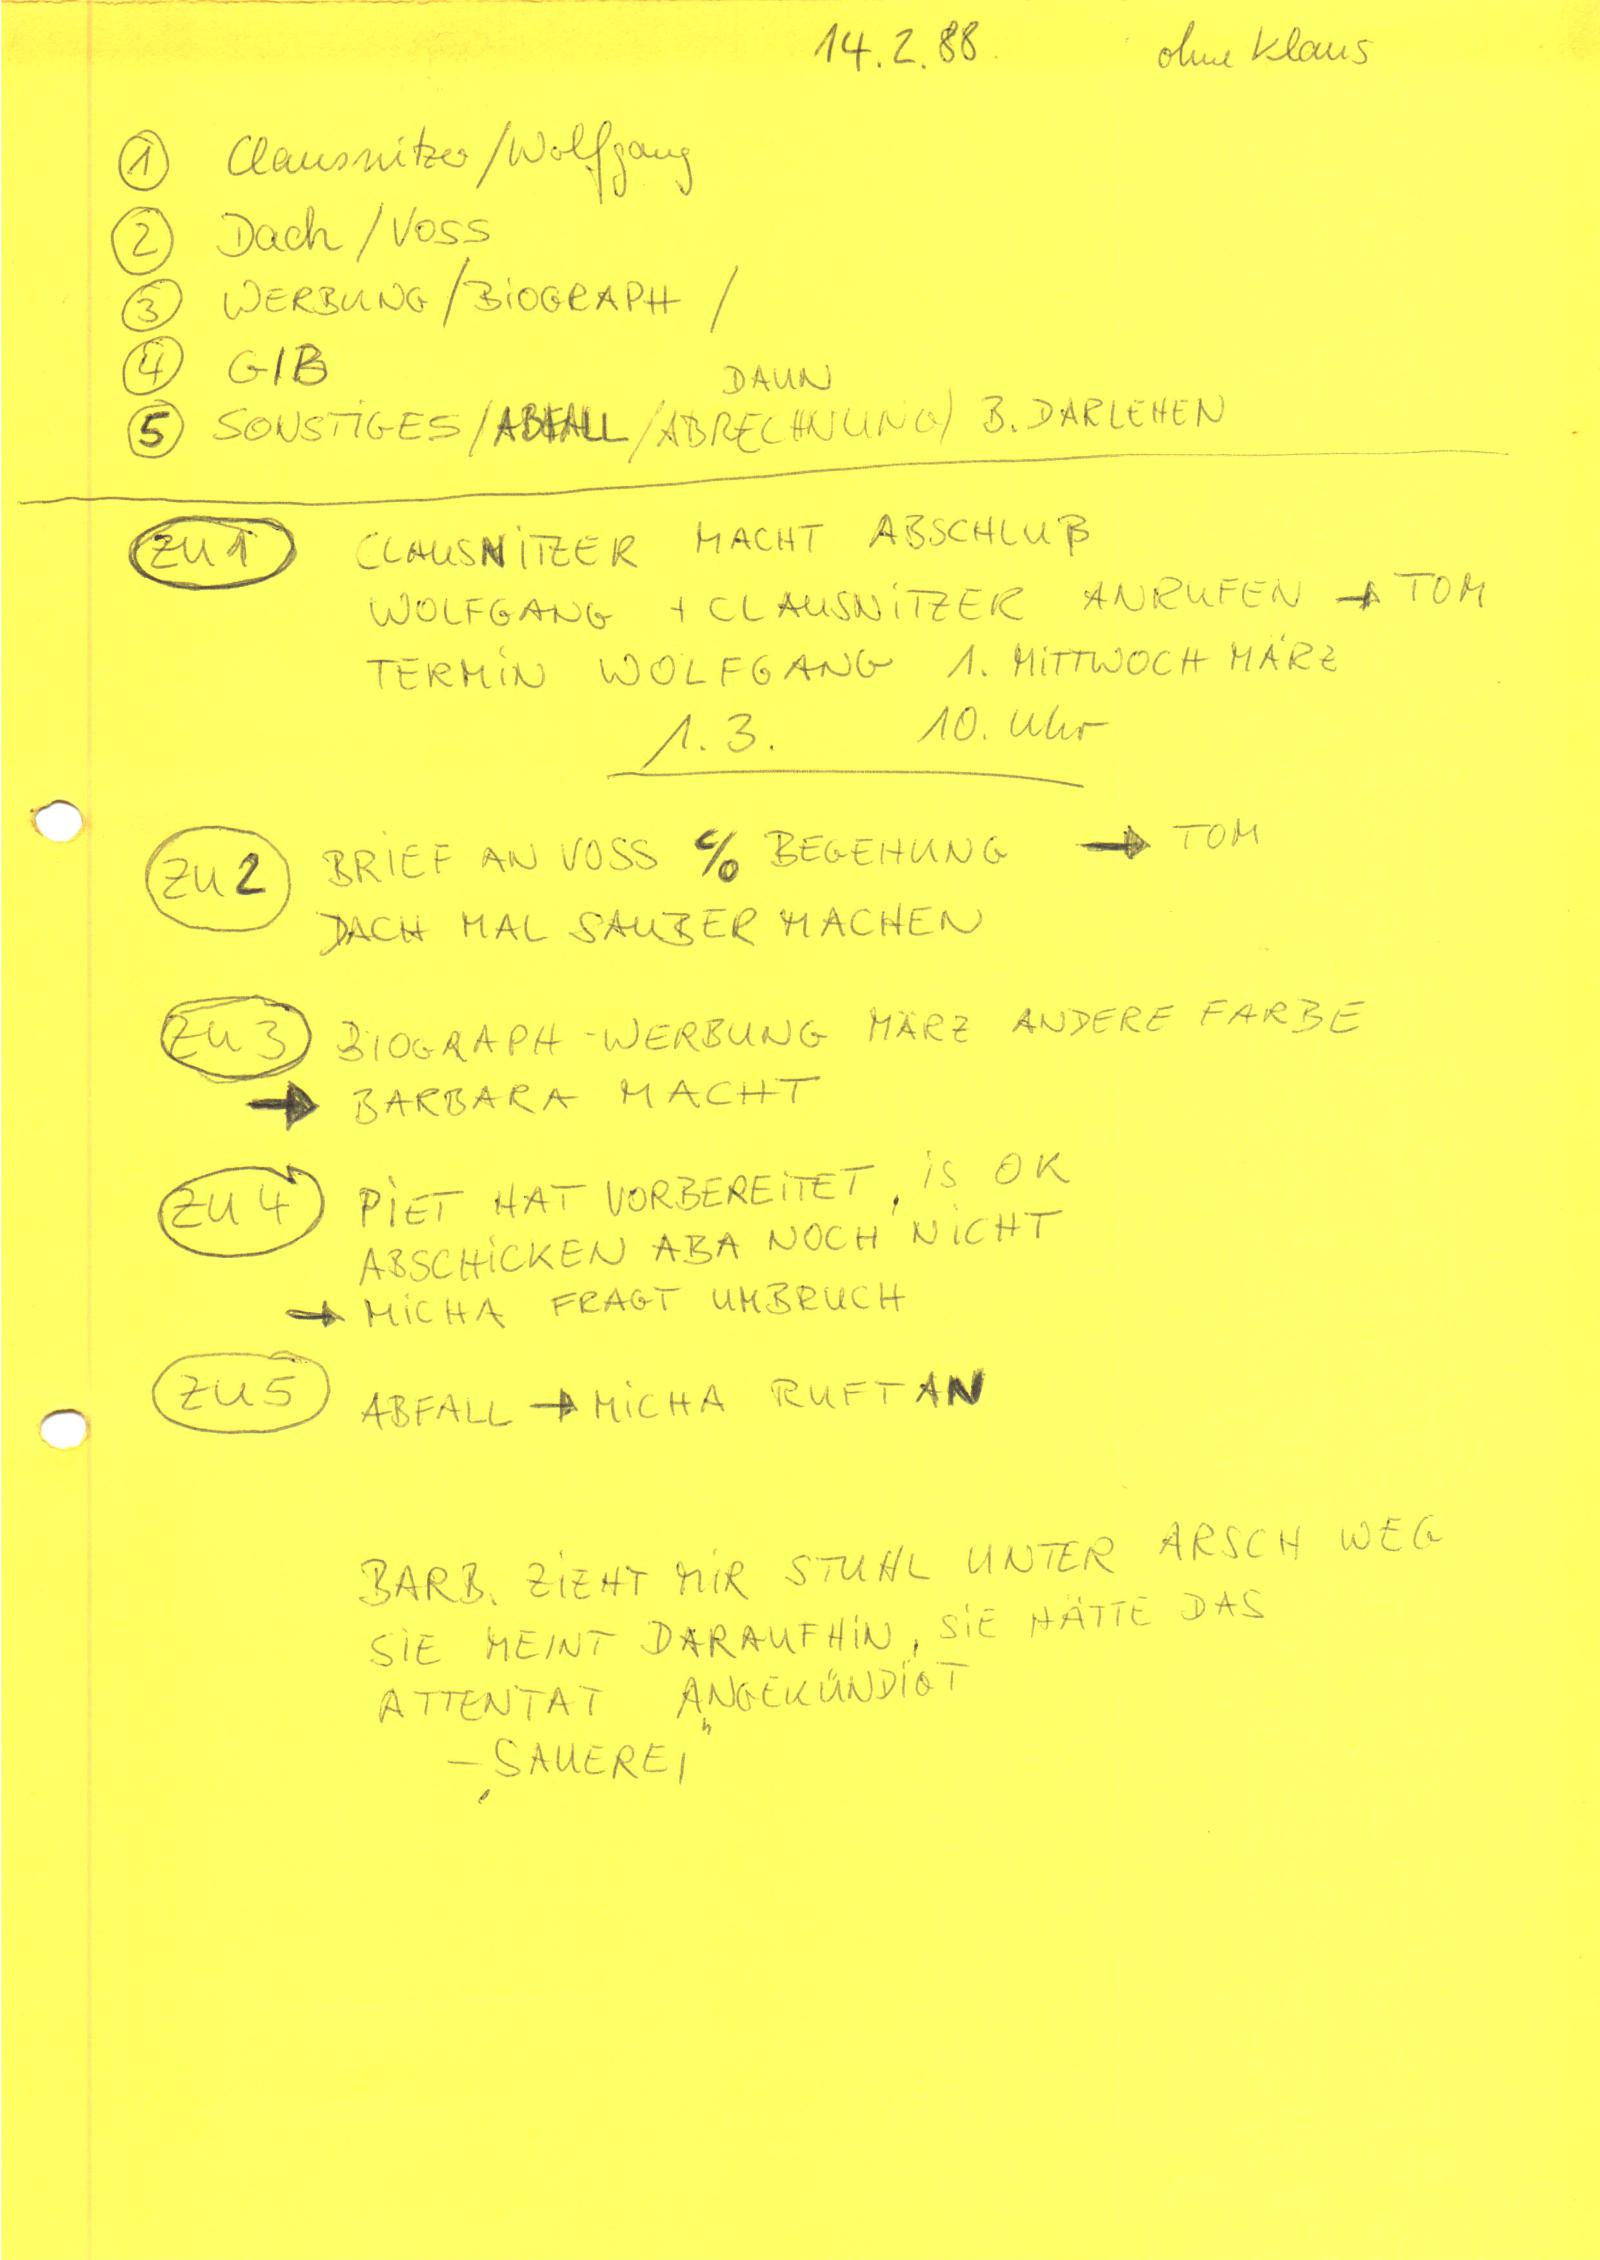 14.2.88. ohne Klaus
① Claussnitzer/Wolfgang
② Dach/Voss
③ WERBUNG/BIOGRAPH/
④ G/B
DAUN
⑤ SONSTIGES/ABFALL/ABRECHNUNG/B. DARLEHEN
ZU 1 CLAUSNITZER MACHT ABSCHLUß
WOLFGANG + CLAUSNITZER ANRUFEN → TOM
TERMIN WOLFGANG 1. MITTWOCH MÄRZ
1.3. 10. Uhr
ZU 2 BRIEF AN VOSS c/o BEGEHUNG → TOM
DACH MAL SAUBER MACHEN
ZU 3 BIOGRAPH-WERBUNG MÄRZ ANDERE FARBE
→ BARBARA MACHT
ZU 4 PIET HAT VORBEREITET, IS OK
ABSCHICKEN ABA NOCH NICHT
→ MICHA FRAGT UMBRUCH
ZU 5 ABFALL → MICHA RUFT AN
BARB. ZIEHT MIR STUHL UNTER ARSCH WEG
SIE MEINT DARAUFHIN, SIE HÄTTE DAS
ATTENTAT ANGEKÜNDIGT
– „SAUEREI"